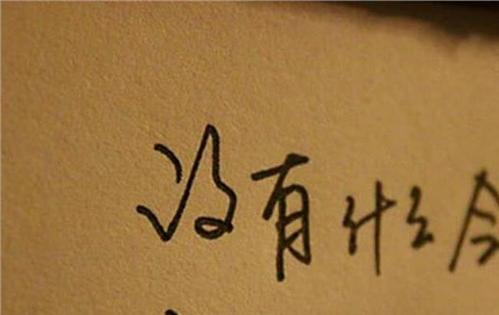 没有什么